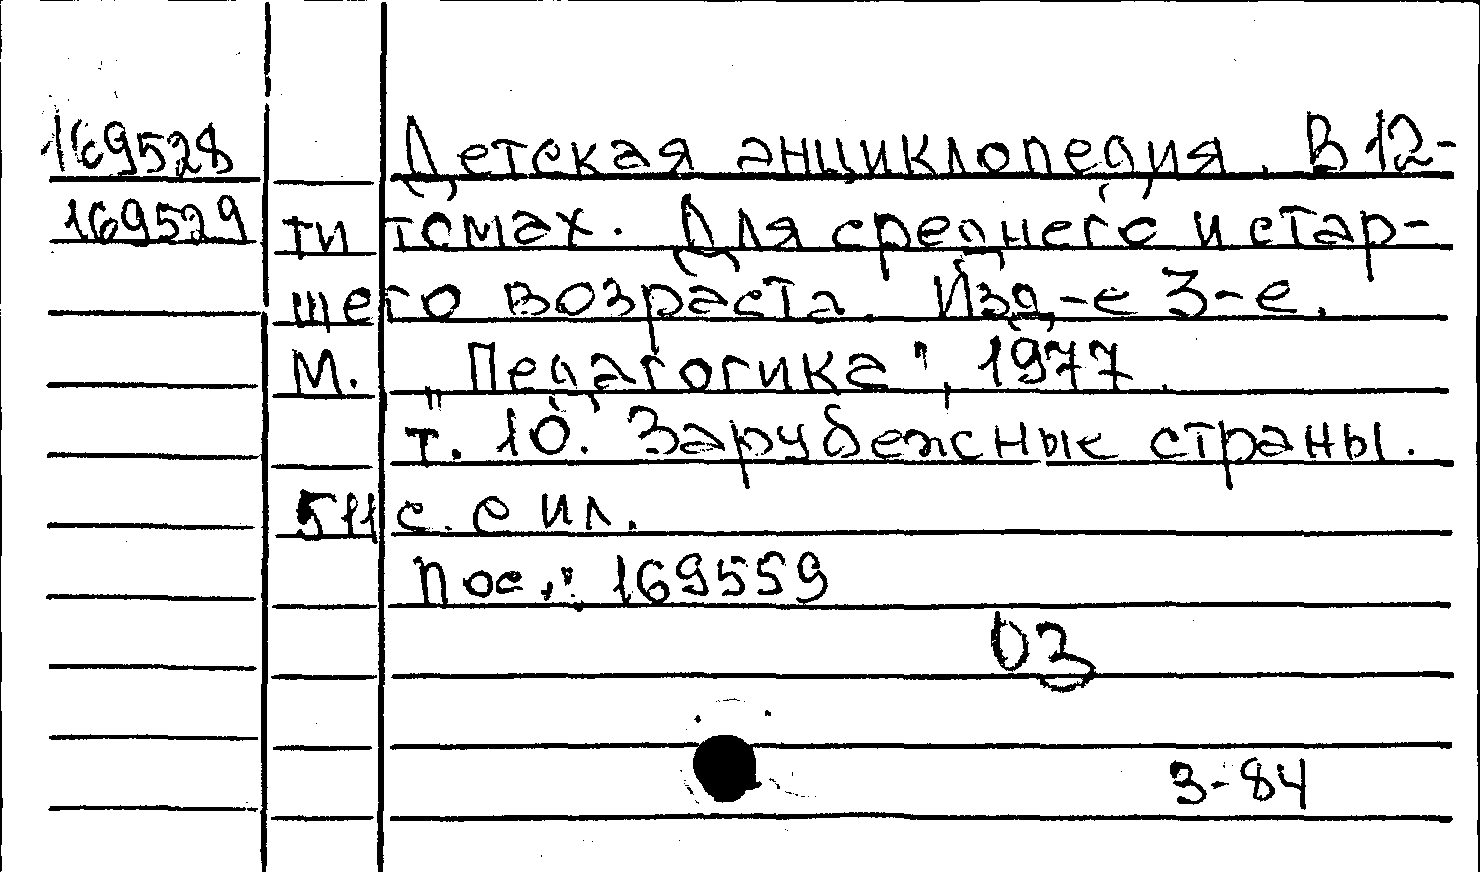 169528 Детская энциклопедия. В 12-
169529 ти томах. Для среднего и стар-
шего возраста. Изд-е 3-е.
М. „Педагогика", 1977.
т. 10. Зарубежные страны.
511 с. с ил.
Пос.: 169559
03
3-84